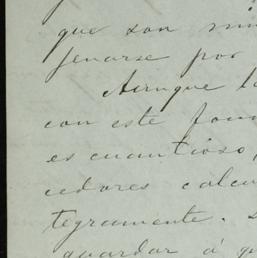 que son min
jenarse por
Aunque la
con este fon
es cuantioso,
cedores calcu
tegramente. S
guardar á qu